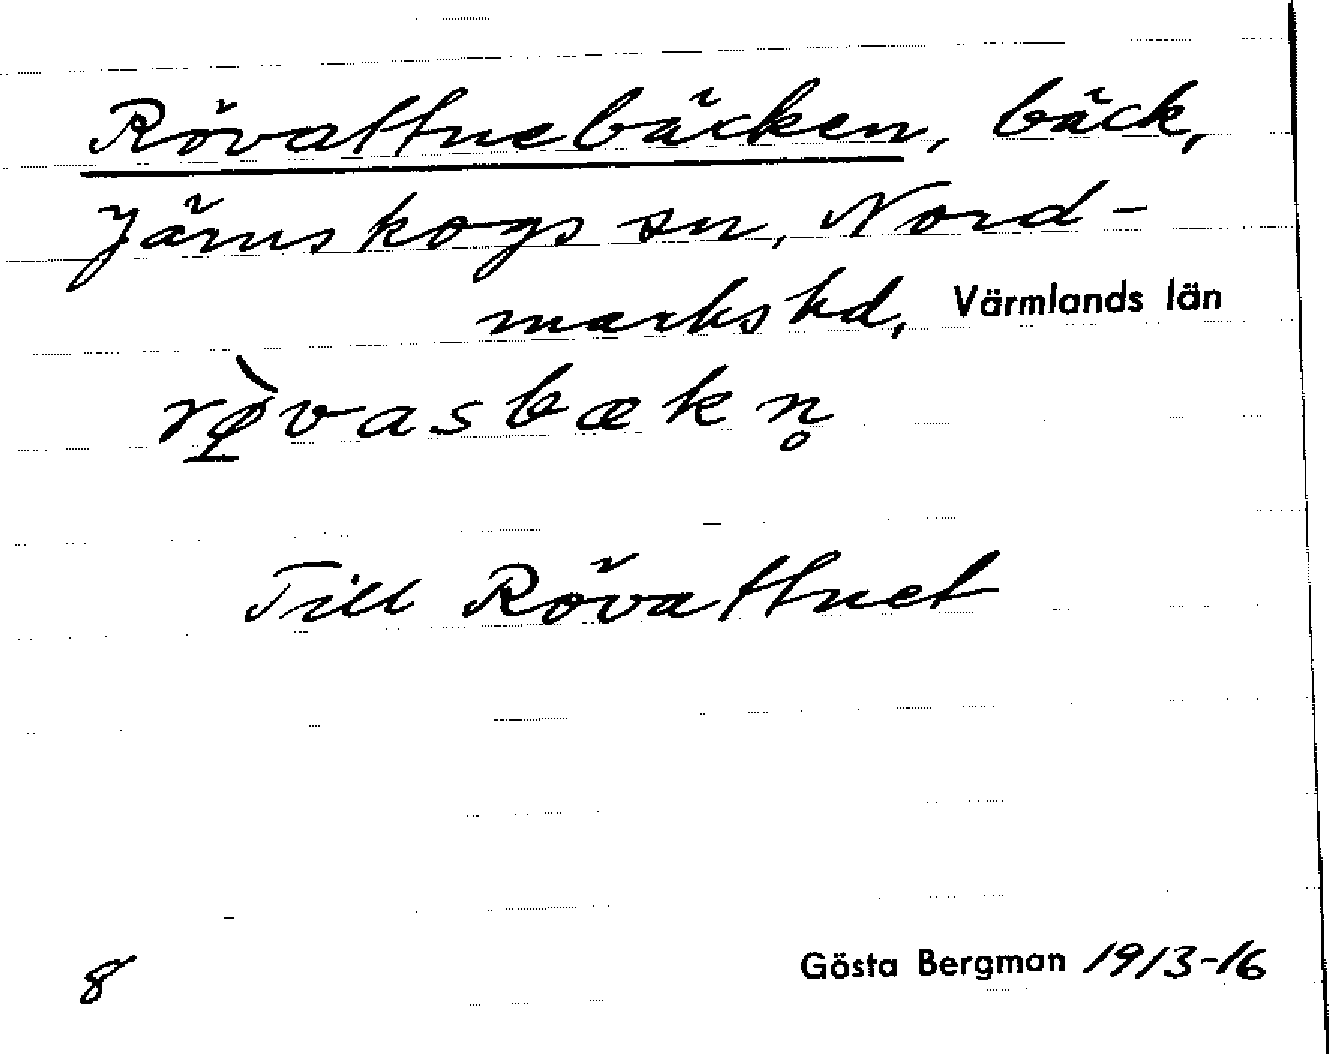 Rövattnebäcken, bäck,
Järnskogs sn, Nord-
marks hd, Värmlands län
rø̠̀vasbækn̥
Till Rövattnet
8
Gösta Bergman 1913-16